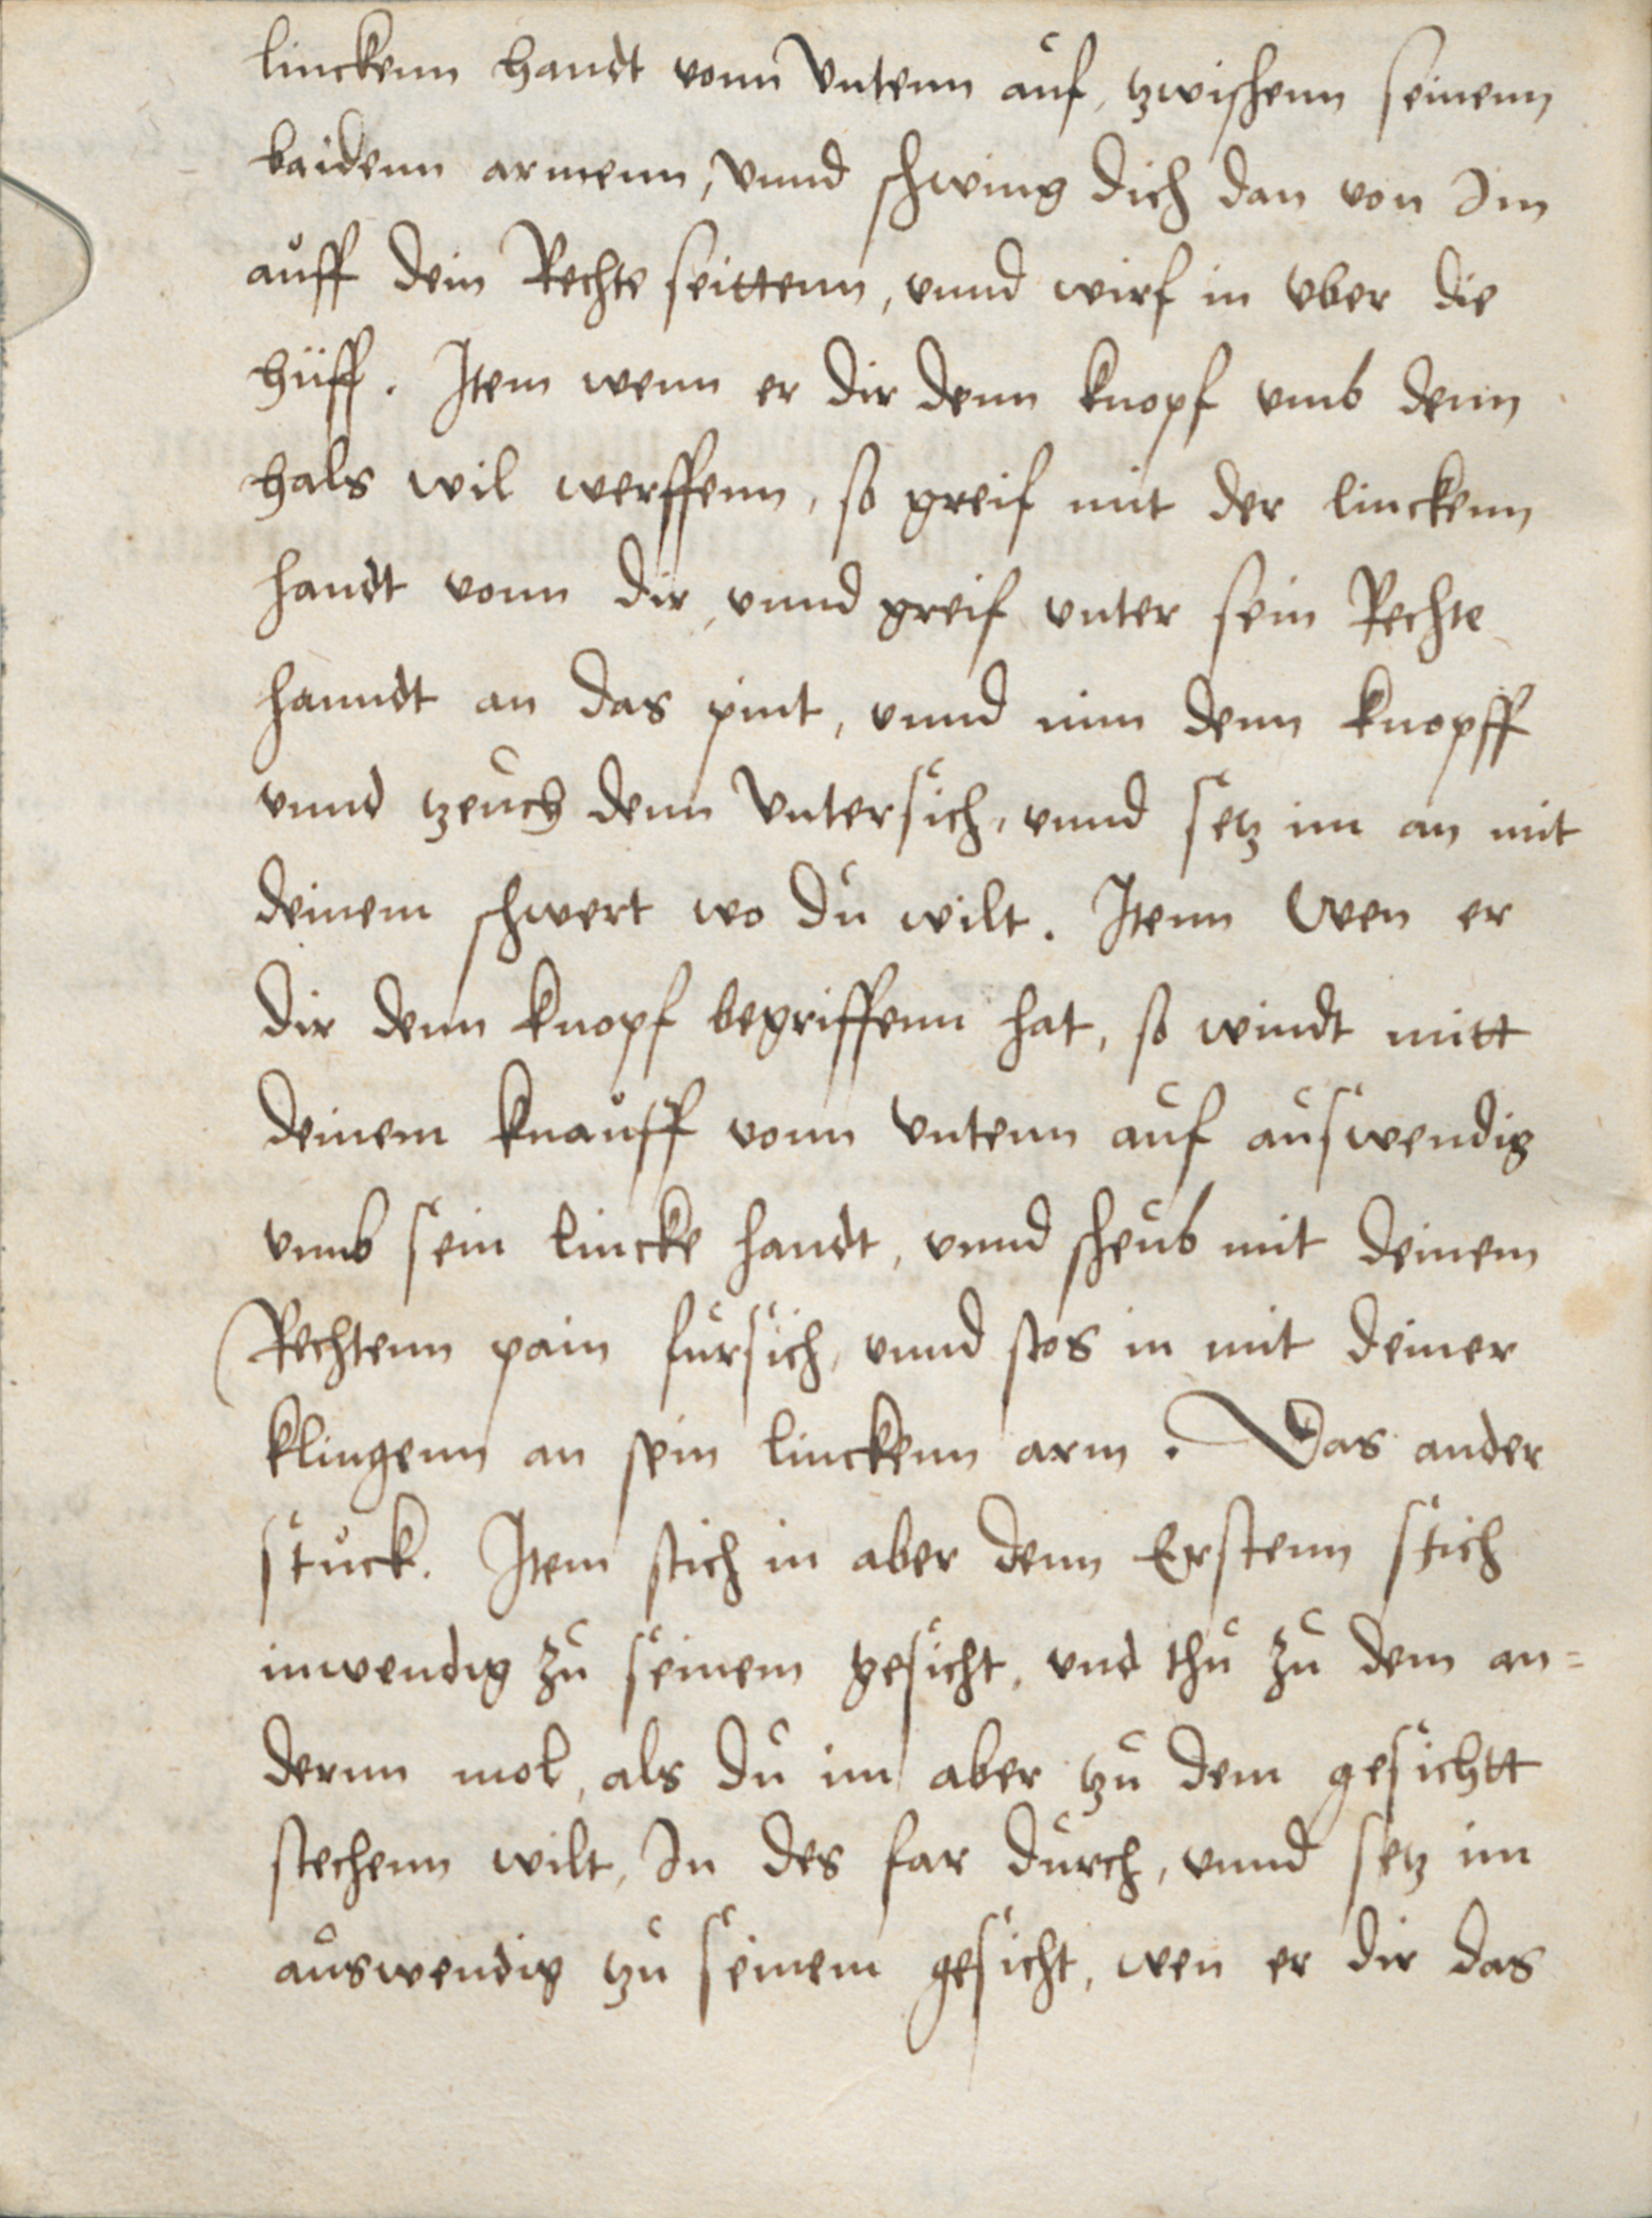 linckenn handt vonn Vntenn auf, tzwischenn seinenn
baidenn armenn, Vnnd schwing dich dan von Im
auff dein Rechte seittenn, vnnd wirf in vber die
hüff. Item wenn er dir denn knopf vmb denn
hals wil werffenn, so greif mit der linckenn
handt vonn dir, vnnd greif vnter sein Rechte
hanndt an das pint, vnnd nim denn knopff
vnnd tzeuch denn Vntersich, vnnd setz im an mit
deinem schwert wo du wilt. Itenn Wen er
dir denn knopf begriffenn hat, so windt mitt
deinem knauff vonn Vntenn auf auswendig
vmb sein lincke handt, vnnd scheub mit deinem
Rechtenn pain fursich, vnnd stos in mit deiner
klingenn an sein linckenn arm. Das ander
stuck. Item stich in aber denn Erstenn stich
inwendig zu seinem gesicht, vnd thu zu dem an=
dernn mol, als du im aber tzu dem gesichtt
stechenn wilt, In des far durch, vnnd setz im
auswendig tzu seinem gesicht, wen er dir das